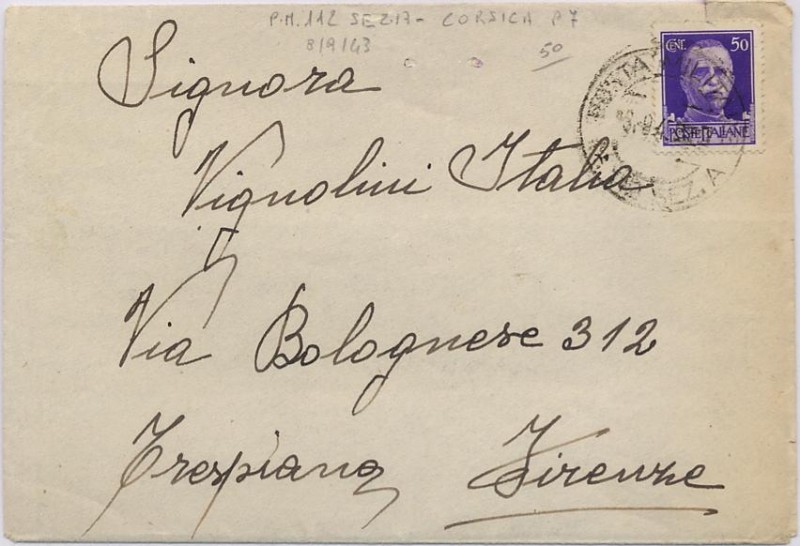 P.M. 112 SEZ. A - CORSICA P7
8/9/43
50
CENT. 50
POSTE ITALIANE
POSTA
SEZ. A
Signora
Vignolini Italia
Via Bolognese 312
Trespiano Firenze